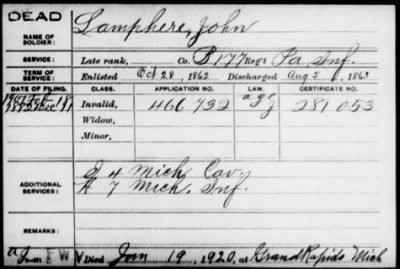 DEAD
NAME OF SOLDIER: Lamphere, John
SERVICE: Late rank, Co. B 177 Reg't Pa Inf.
TERM OF SERVICE: Enlisted Oct 28, 1862 Discharged Aug 5, 1863
DATE OF FILING. CLASS. APPLICATION NO. LAW. CERTIFICATE NO.
Invalid, 466,732 281 053
Widow,
Minor,
ADDITIONAL SERVICES: I 4 Mich. Cav.
H 7 Mich. Inf.
REMARKS:
Died Jan 19, 1920, at Grand Rapids Mich